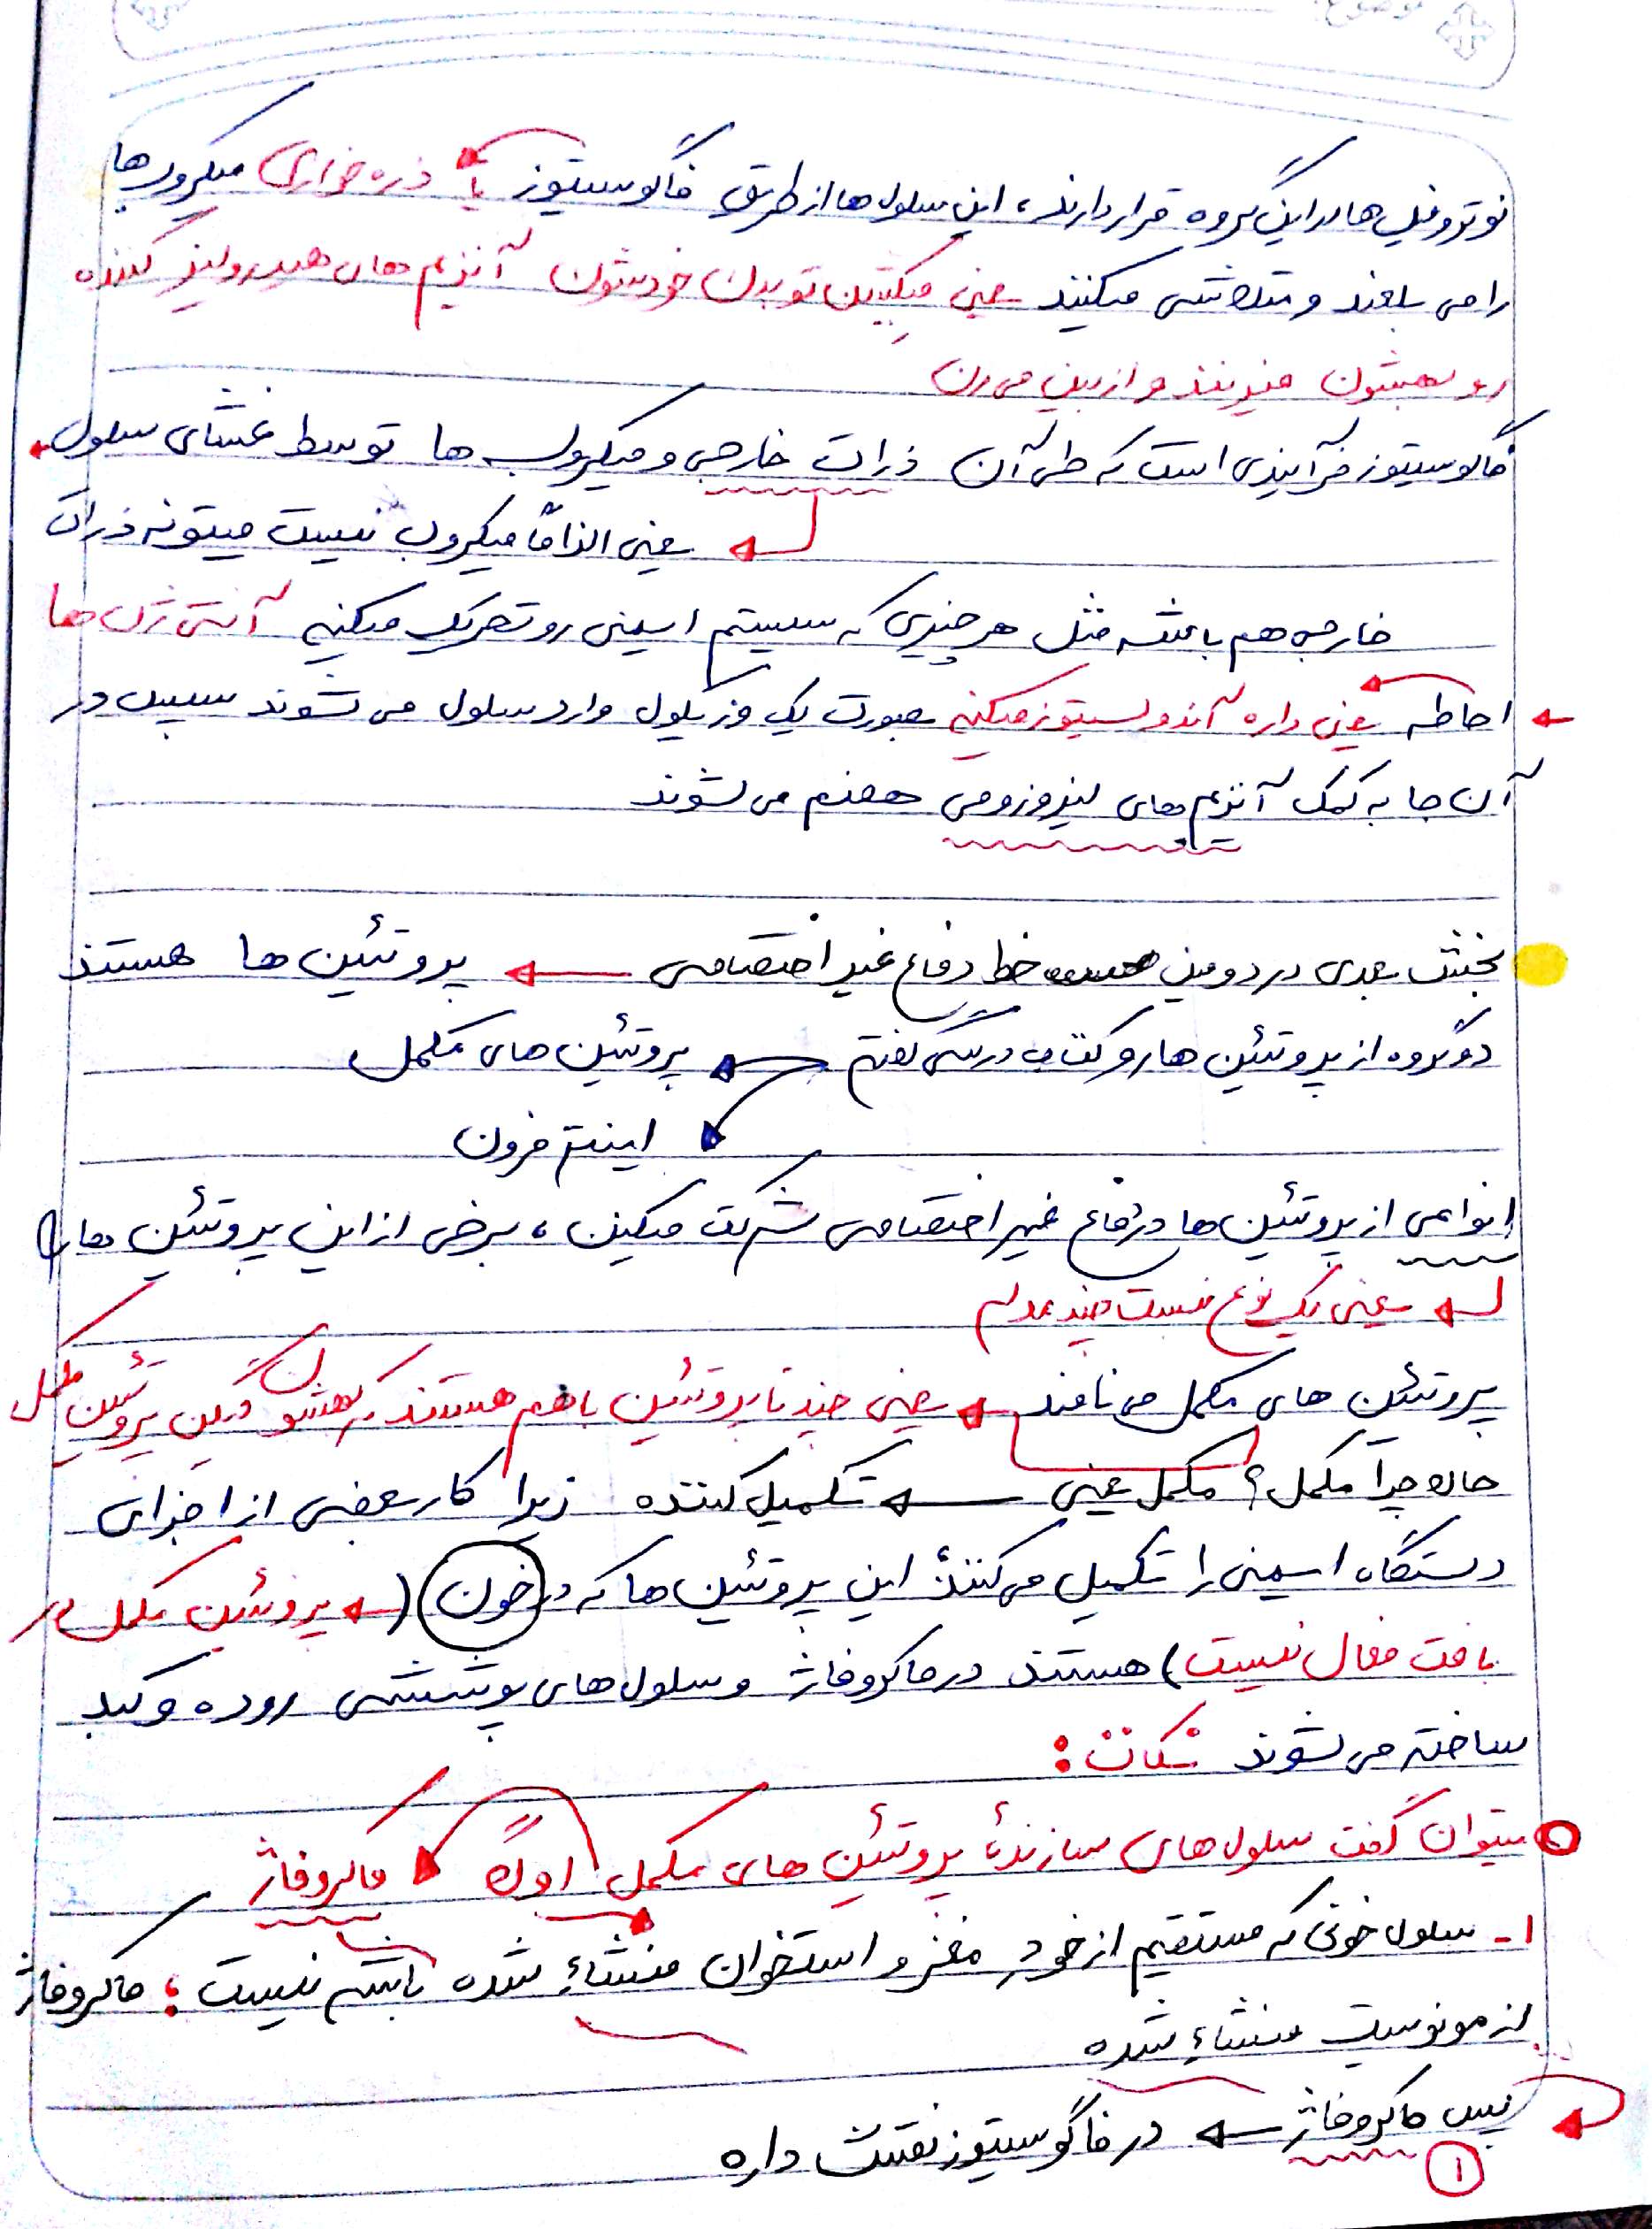 موضوع:
نوتروفیل ها در این گروه قرار دارند، این سلول ها از طریق فاگوسیتوز یا ذره خواری میکروب ها
را می بلعند و متلاشی میکنند یعنی میکشن تو بدن خودشون آنزیم های هیدرولیز کننده
رو بهشون میریزند و از بین می رن
فاگوسیتوز فرآیندی است که طی آن ذرات خارجی و میکروب ها توسط غشای سلول
یعنی الزاماً میکروب نیست میتونه ذرات
خارجی هم باشه مثل هر چیزی که سیستم ایمنی رو تحریک میکنه آنتی ژن ها
احاطه یعنی داره آندوسیتوز میکنه بصورت یک وزیکول وارد سلول می شوند سپس در
آن جا به کمک آنزیم های لیزوزومی هضم می شوند
بخش بعدی در دومین خط دفاع غیر اختصاصی پروتئین ها هستند
دو گروه از پروتئین ها رو کتاب درسی گفته پروتئین های مکمل
اینترفرون
انواعی از پروتئین ها در دفاع غیر اختصاصی شرکت میکنن، برخی از این پروتئین ها را
یعنی یک نوع نیست چند مدله
پروتئین های مکمل می نامند یعنی چند تا پروتئین با هم هستند که بهشون میگن پروتئین مکمل
حالا چرا مکمل؟ مکمل یعنی تکمیل کننده زیرا کار بعضی از اجزای
دستگاه ایمنی را تکمیل می کنند این پروتئین ها که در خون (پروتئین مکمل در
بافت فعال نیست) هستند در ماکروفاژ و سلول های پوششی روده و کبد
ساخته می شوند نکات:
میتوان گفت سلول های سازندهٔ پروتئین های مکمل اولاً ماکروفاژ
۱- سلول خونی که مستقیم از خودِ مغز و استخوان منشاءِ شده باشه نیست؛ ماکروفاژ
از مونوسیت منشاءِ شده
پس ماکروفاژ در فاگوسیتوز نقش داره
۱